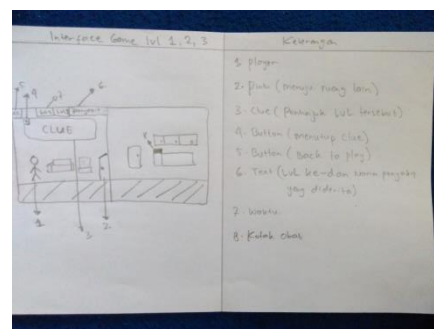 Interface Game lvl 1, 2, 3
5 4 7 6
CLUE
8
1
3
2
Keterangan
1. player
2. Pintu (menuju ruang lain)
3. Clue (Petunjuk lvl tersebut)
4. Button (menutup clue)
5. Button (Back to play)
6. Text (lvl ke- dan nama penyakit
yang diderita)
7. waktu
8. Kotak obat